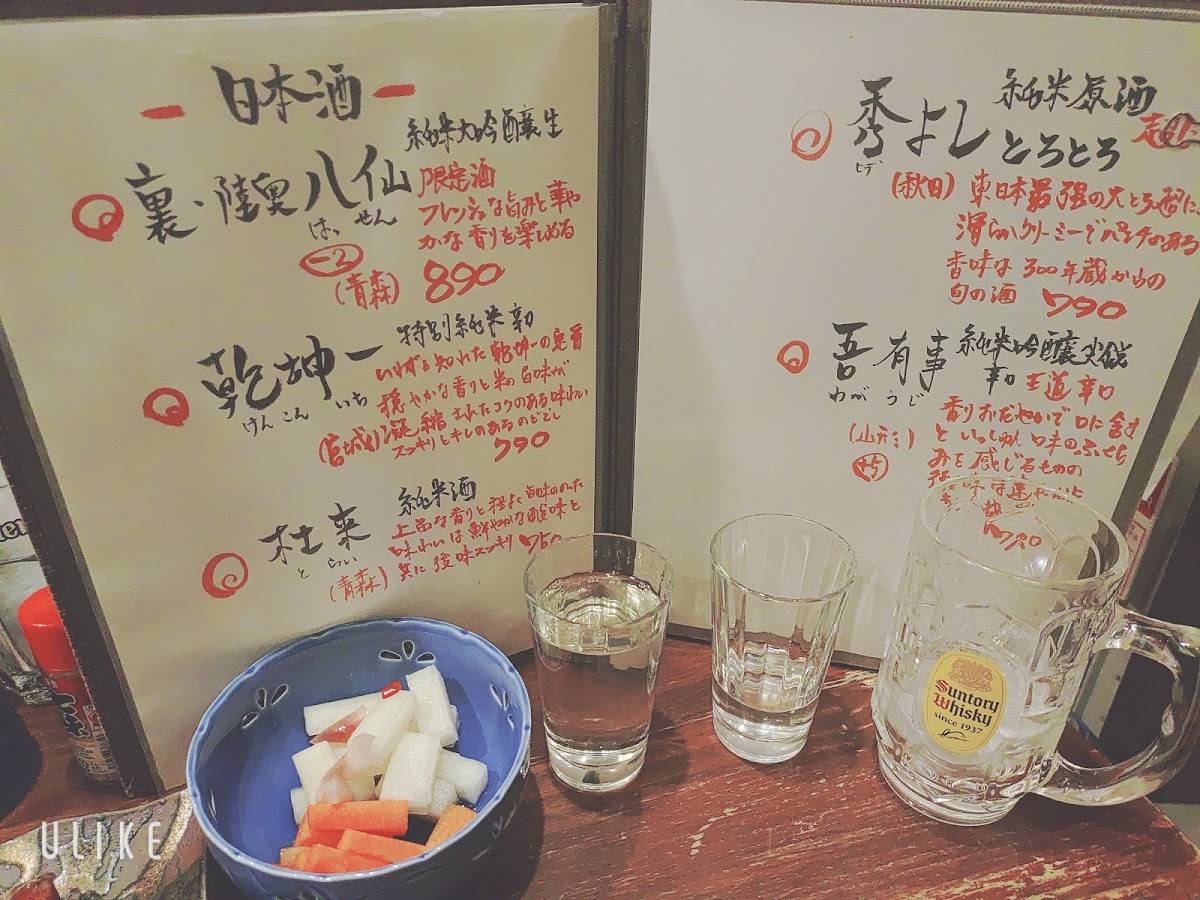 日本酒
純米大吟醸生
裏・陸奥八仙
はっせん
限定酒
フレッシュな旨みと華や
かな香りを楽しめる
-2
(青森)
890
特別純米辛口
乾坤一
けんこん いち
いわずと知れた乾坤一の定番
穏やかな香りと米の旨味が
(宮城)凝縮されたコクのある味わい
スッキリとキレのあるのどごし
790
純米酒
杜來
とらい
(青森)
上品な香りと程よく旨味ののった
味わいは鮮やかな酸味と
共に後味スッキリ 750
純米原酒
秀よしとろとろ
ヒデ
(秋田)
東日本最強の大とろ酒に
滑らかクリーミーでパンチのある
香味は300年蔵からの
旬の酒 790
吾有事
わがうじ
純米吟醸尖鋭
辛口 王道辛口
(山形)
+5
香りおだやかで口に含む
といっしゅん味のふくら
みを感じるものの
790
Suntory
Whisky
since 1937
ULIKE